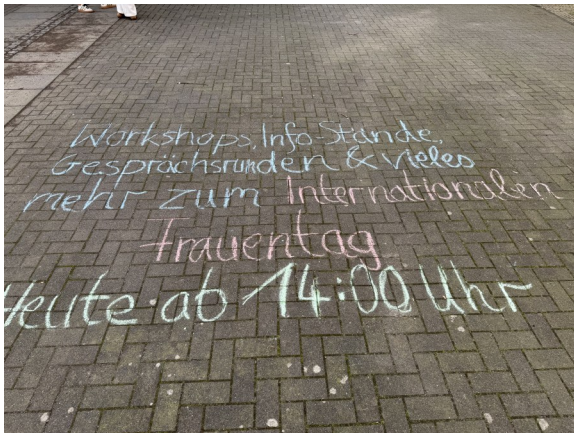 Workshops, Info-Stände,
Gesprächsrunden & vieles
mehr zum Internationalen
Frauentag
Heute ab 14:00 Uhr